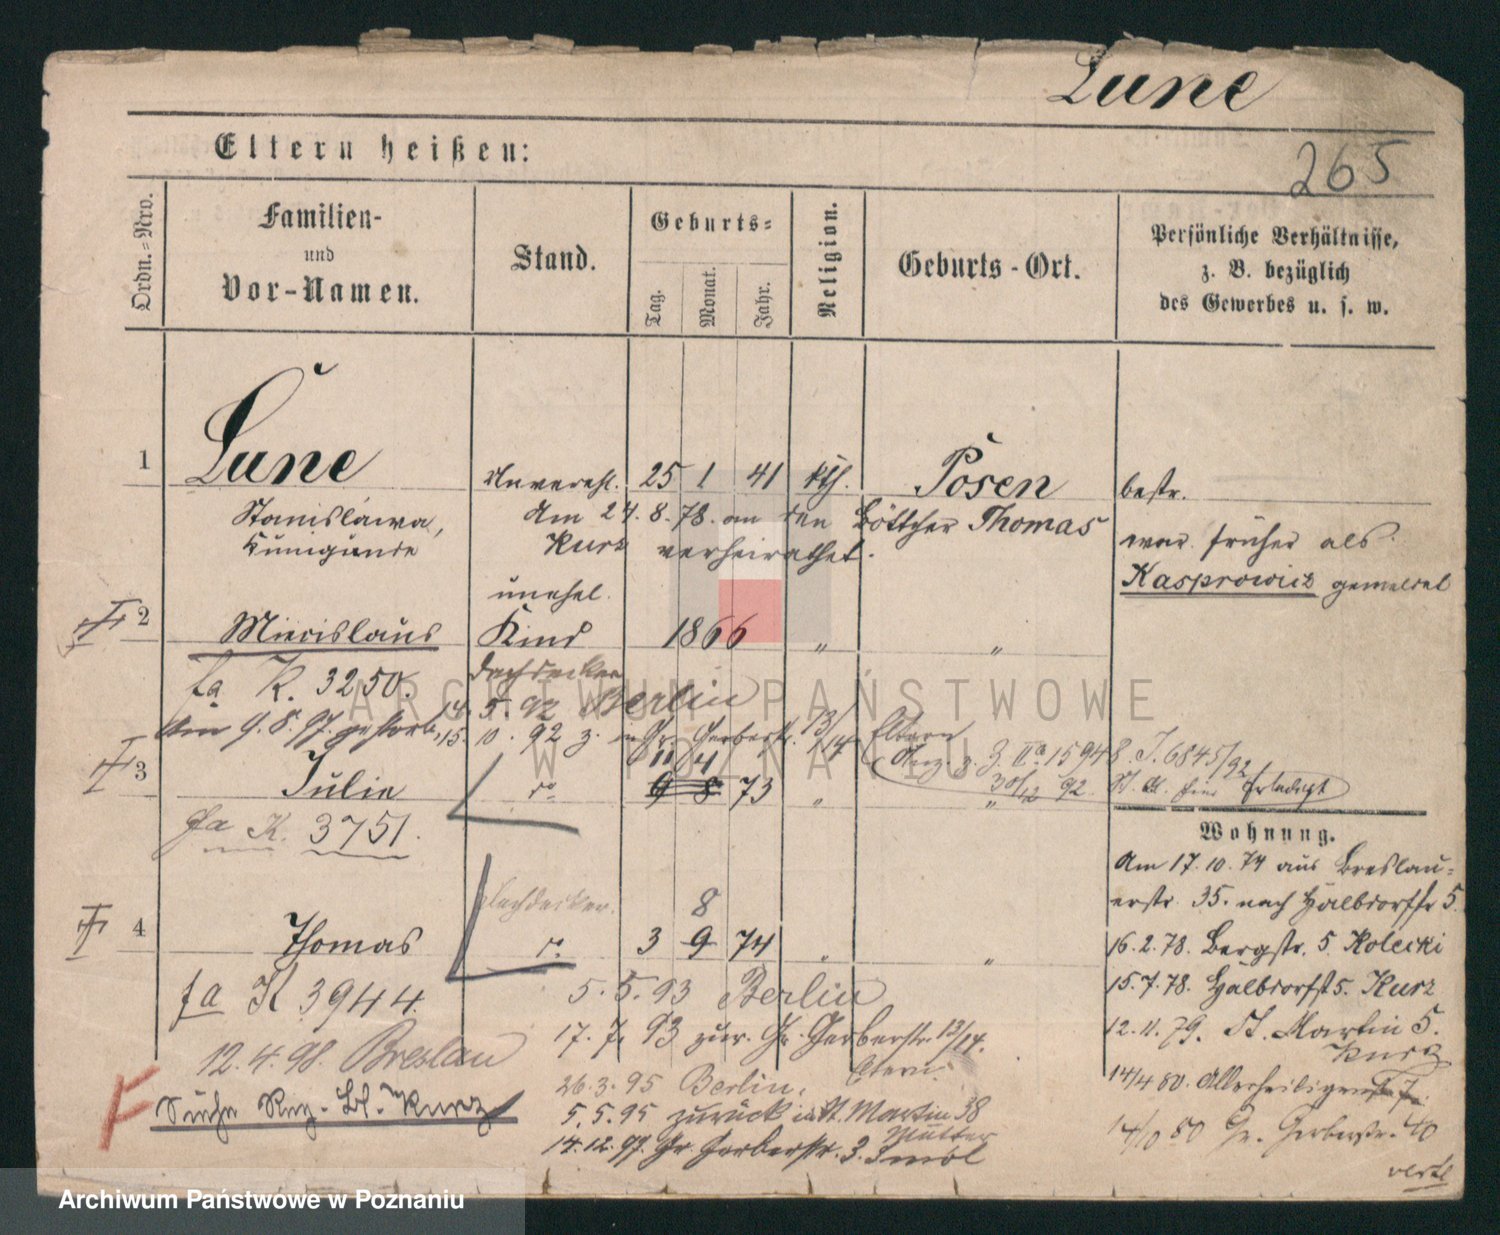 Lune
265
Eltern heißen:
Ordn.-Nro.
Familien-
und
Vor-Namen.
Stand.
Geburts-
Tag.
Monat.
Jahr.
Religion.
Geburts-Ort.
Persönliche Verhältnisse,
z. B. bezüglich
des Gewerbes u. s. w.
1
Lune
Stanislawa,
Kunigunde
Unverehl. 25 1 41 kth. Posen bestr.
Am 24.8.78. an den Böttcher Thomas
Kurz verheirathet.
war früher als
Kasprowicz gemeldet
2
Miecislaus
unehel.
Kind
1866 " "
fa K. 3250.
Dachdecker
14. 5. 92 Berlin
Am 9.8.97. gestorb.
15. 10. 92 z. in Gr. Gerberstr. 13/14 Eltern
3
Julie
do
11 4
9 8 73 " "
Anz. z. J. IIa 15948. J. 6845/92
30/12 92.
fa K. 3751.
Wohnung.
Am 17.10.74 aus Breslau-
erstr. 35. nach Halbdorfstr 5.
16.2.78. Bergstr. 5 Kolecki
15.7.78. Halbdorfst 5. Kurz
12.11.79. St. Martin 5.
Kurz
14/4 80. Allerheiligenstr 7.
14/10 80 Gr. Gerberstr. 40
verte
4
Thomas
Dachdecker.
do
8
3 9 74 " "
fa K 3944.
5.5.93 Berlin
17.7.93 zur. Gr. Gerberstr. 13/14.
Eltern.
12.4.98. Breslau
26.3.95 Berlin.
Siehe Reg.-Bl. Kurz
5.5.95 zurück in St. Martin 38
Mutter
14.12.97. Gr. Gerberstr. 3. Smol
ARCHIWUM PAŃSTWOWE
W POZNANIU
Archiwum Państwowe w Poznaniu